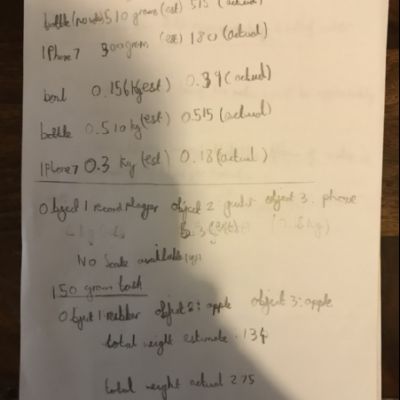 bottle 510 gram(est) 515 (actual)
iPhone 7 300gram (est) 180 (actual)
bowl 0.156kg(est) 0.39(actual)
bottle 0.510kg(est) 0.515 (actual)
iPhone 7 0.3 kg (est) 0.18(actual)
Object 1 record player object 2 object 3. phone
No scale available
150 gram task
Object 1: rubber object 2: apple object 3: apple
total weight estimate .134
total weight actual 275